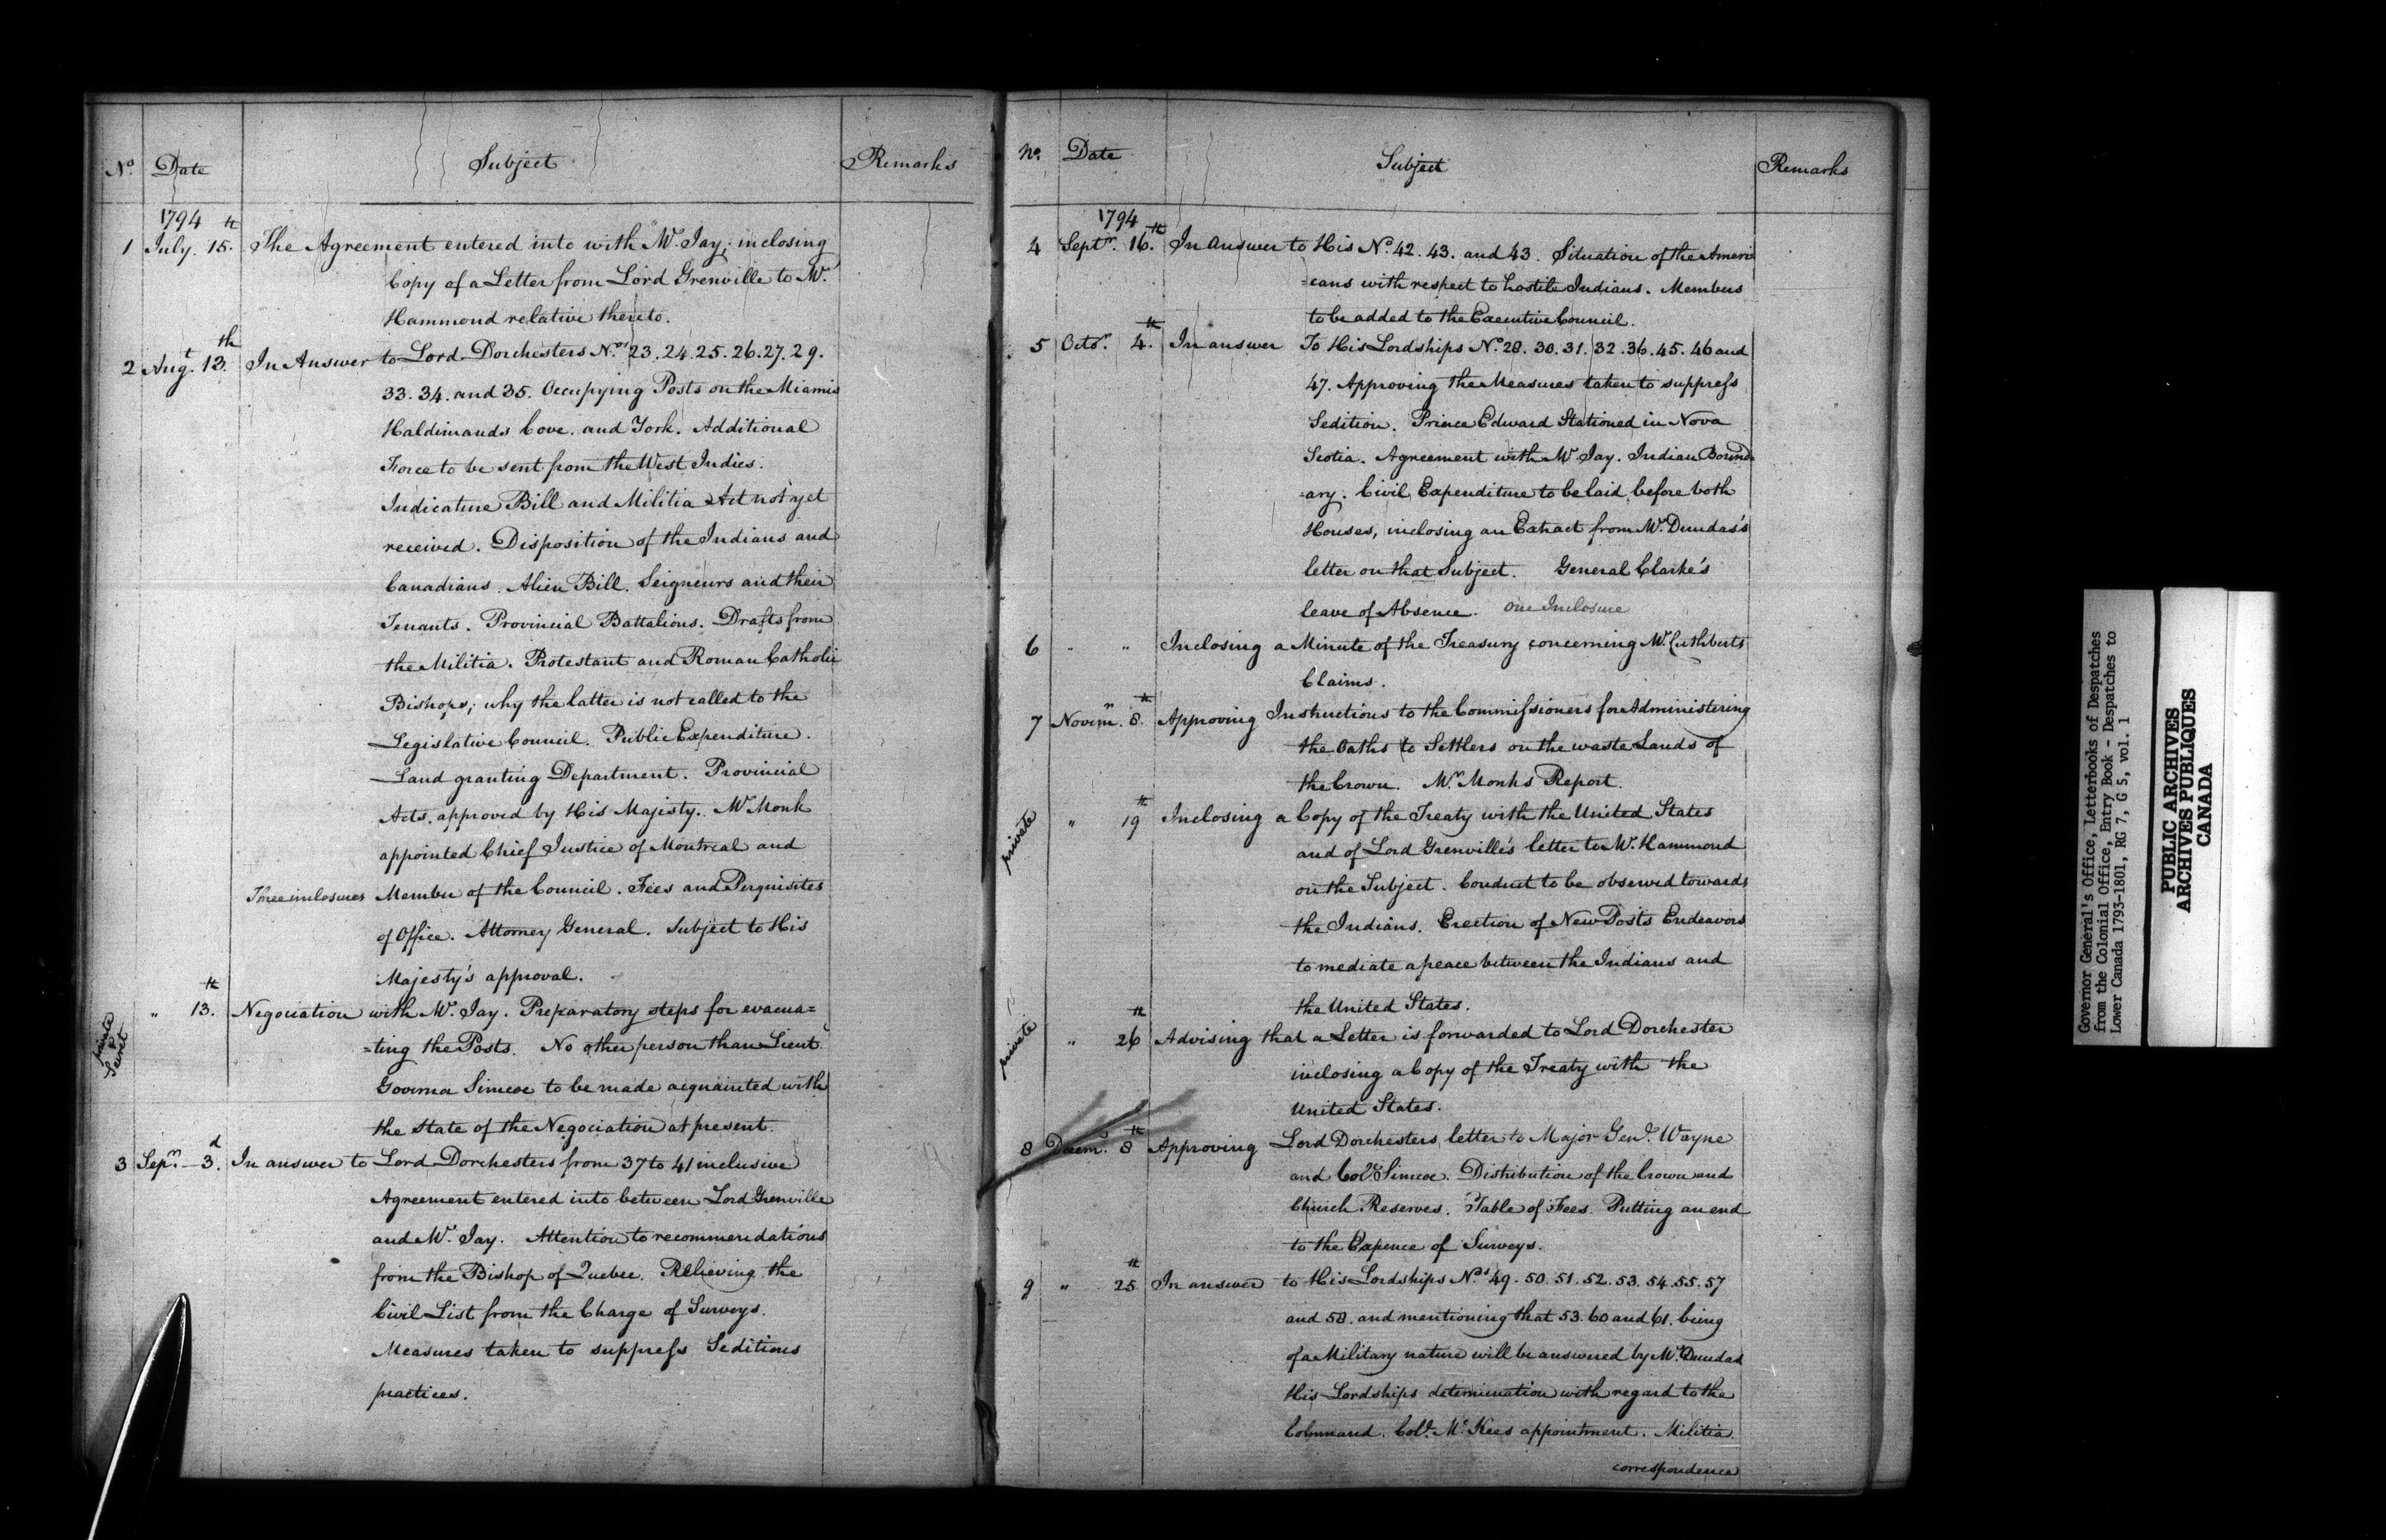 No. Date Subject Remarks
1794
1 July. 15.th The Agreement entered into with Mr. Jay, inclosing
Copy of a Letter from Lord Grenville to Mr.
Hammond relative thereto.
2 Augt. 13.th In Answer to Lord Dorchesters Nos. 23. 24. 25. 26. 27. 29.
33. 34. and 35. Occupying Posts on the Miamis
Haldimands Cove. and York. Additional
Force to be sent from the West Indies.
Judicature Bill and Militia Act not yet
received. Disposition of the Indians and
Canadians. Alien Bill. Seigneurs and their
Tenants. Provincial Battalions. Drafts from
the Militia. Protestant and Roman Catholic
Bishops; why the latter is not called to the
Legislative Council. Public Expenditure.
Land granting Department. Provincial
Acts. approved by His Majesty. Mr. Monk
appointed Chief Justice of Montreal and
Three inclosures Member of the Council. Fees and Perquisites
of Office. Attorney General. Subject to His
Majesty's approval.
private & Secret " 13.th Negociation with Mr. Jay. Preparatory steps for evacua=
=ting the Posts. No other person than Lieut.
Governor Simcoe to be made acquainted with
the State of the Negociation at present.
3 Sepr. 3.d In answer to Lord Dorchesters from 37 to 41 inclusive
Agreement entered into between Lord Grenville
and Mr. Jay. Attention to recommendations
from the Bishop of Quebec. Relieving the
Civil List from the Charge of Surveys.
Measures taken to suppress Seditious
practices.
No. Date Subject Remarks
1794
4 Septr. 16.th In Answer to His No. 42. 43. and 43. Situation of the Ameri
=cans with respect to hostile Indians. Members
to be added to the Executive Council.
5 Octor. 4.th In answer To His Lordships No. 28. 30. 31. 32. 36. 45. 46 and
47. Approving the Measures taken to suppress
Sedition. Prince Edward Stationed in Nova
Scotia. Agreement with Mr. Jay. Indian Bound
=ary. Civil Expenditure to be laid before both
Houses, inclosing an Extract from Mr. Dundas's
letter on that Subject. General Clarke's
leave of Absence. One Inclosure
6 " " Inclosing a Minute of the Treasury concerning Mr. Cuthberts
Claims.
7 Novemr. 8.th Approving Instructions to the Commissioners for Administering
the Oaths to Settlers on the waste Lands of
the Crown. Mr. Monks Report.
private " 19th Inclosing a Copy of the Treaty with the United States
and of Lord Grenville's letter to Mr. Hammond
on the Subject. Conduct to be observed towards
the Indians. Erection of New Posts Endeavors
to mediate a peace between the Indians and
the United States.
private " 26th Advising that a Letter is forwarded to Lord Dorchester
inclosing a Copy of the Treaty with the
United States.
8 Decemr. 8th Approving Lord Dorchesters letter to Major Genl. Wayne
and Col. Simcoe. Distribution of the Crown and
Church Reserves. Table of Fees. Putting an end
to the Expence of Surveys.
9 " 25th In answer to His Lordships Nos. 49. 50. 51. 52. 53. 54. 55. 57
and 58. and mentioning that 53. 60 and 61. being
of a Military nature will be answered by Mr. Dundas
His Lordships determination with regard to the
Command. Col. McKees appointment. Militia.
correspondence
Governor General's Office, Letterbooks of Despatches
from the Colonial Office, Entry Book - Despatches to
Lower Canada 1793-1801, RG 7, G 5, vol. 1
PUBLIC ARCHIVES
ARCHIVES PUBLIQUES
CANADA